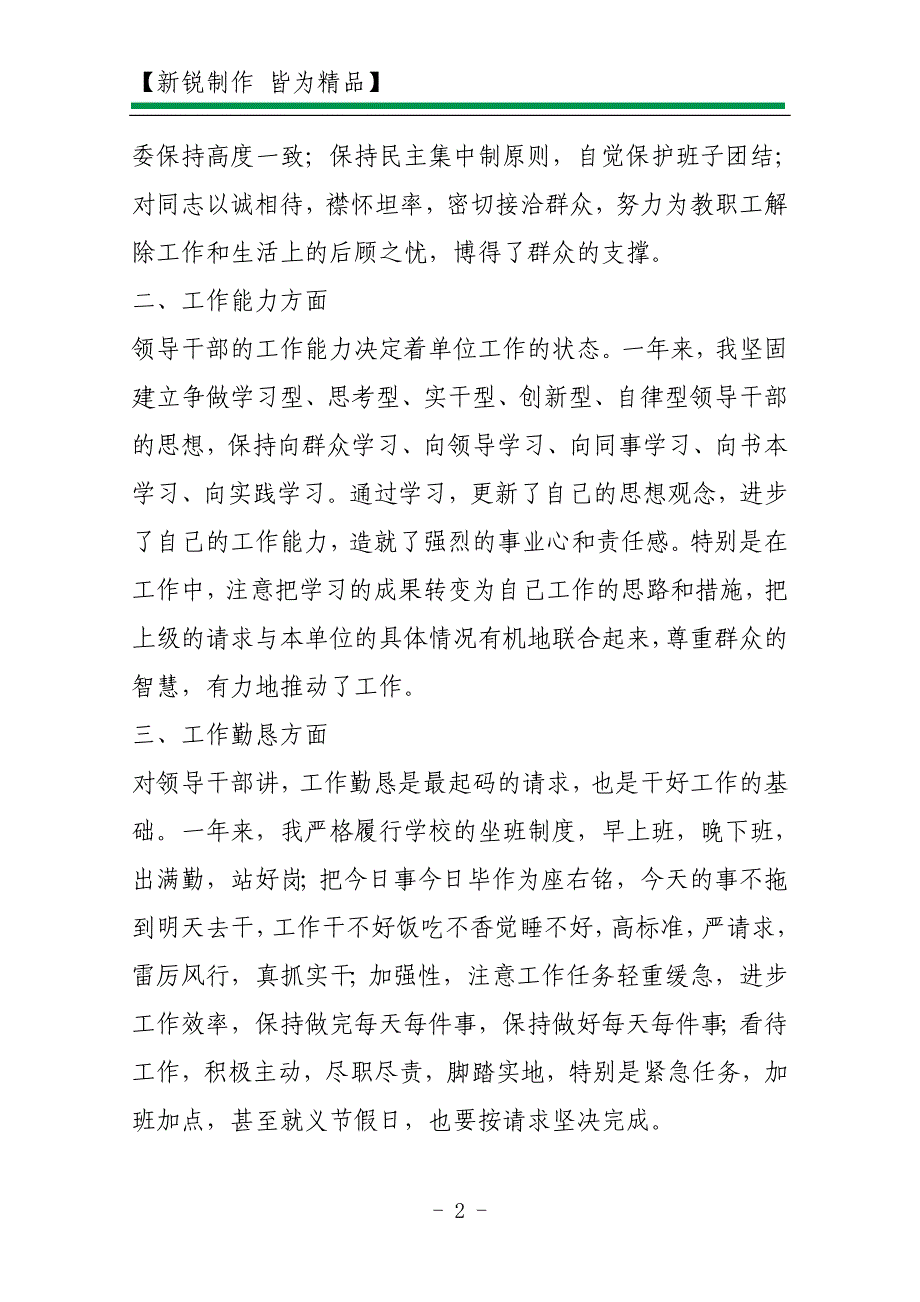 【新锐制作 皆为精品】
委保持高度一致；保持民主集中制原则，自觉保护班子团结；
对同志以诚相待，襟怀坦率，密切接洽群众，努力为教职工解
除工作和生活上的后顾之忧，博得了群众的支撑。
二、工作能力方面
领导干部的工作能力决定着单位工作的状态。一年来，我坚固
建立争做学习型、思考型、实干型、创新型、自律型领导干部
的思想，保持向群众学习、向领导学习、向同事学习、向书本
学习、向实践学习。通过学习，更新了自己的思想观念，进步
了自己的工作能力，造就了强烈的事业心和责任感。特别是在
工作中，注意把学习的成果转变为自己工作的思路和措施，把
上级的请求与本单位的具体情况有机地联合起来，尊重群众的
智慧，有力地推动了工作。
三、工作勤恳方面
对领导干部讲，工作勤恳是最起码的请求，也是干好工作的基
础。一年来，我严格履行学校的坐班制度，早上班，晚下班，
出满勤，站好岗；把今日事今日毕作为座右铭，今天的事不拖
到明天去干，工作干不好饭吃不香觉睡不好，高标准，严请求，
雷厉风行，真抓实干；加强性，注意工作任务轻重缓急，进步
工作效率，保持做完每天每件事，保持做好每天每件事；看待
工作，积极主动，尽职尽责，脚踏实地，特别是紧急任务，加
班加点，甚至就义节假日，也要按请求坚决完成。
- 2 -